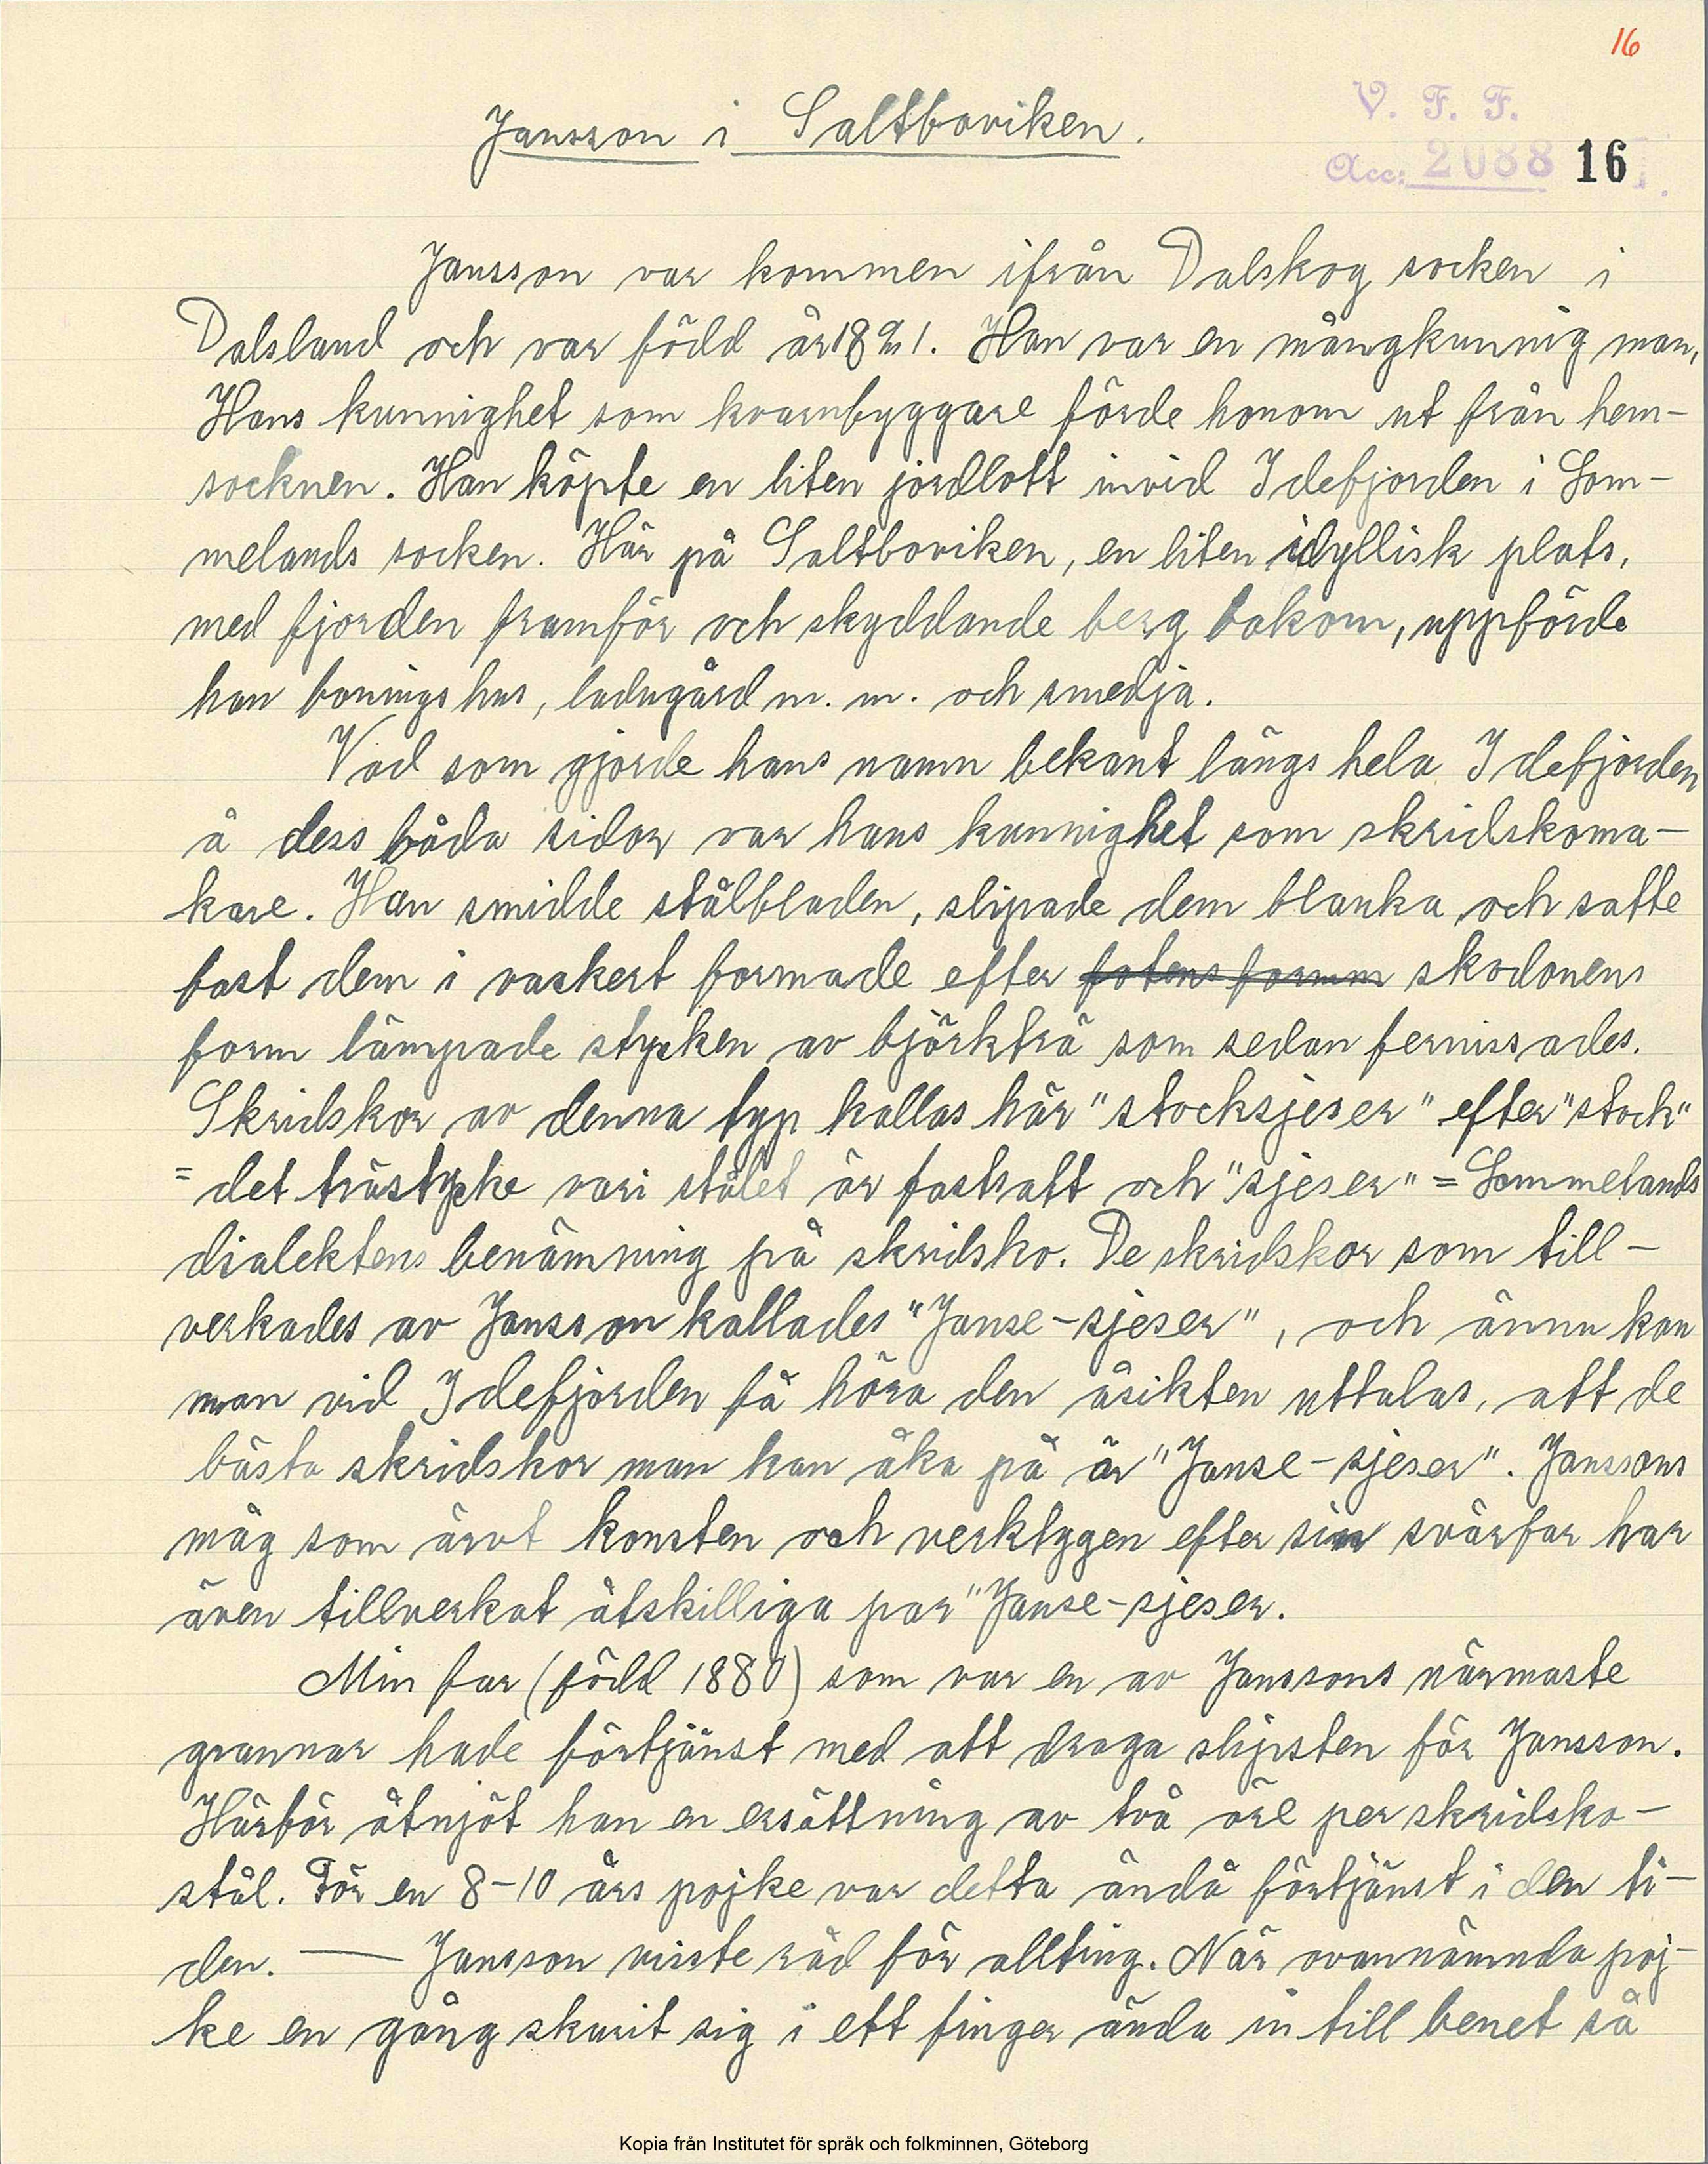 16
V. F. F.
Acc: 2088 16
Jansson i Saltboviken.
Jansson var kommen ifrån Dalskog socken i
Dalsland och var född år 1821. Han var en mångkunnig man,
Hans kunnighet som kvarnbyggare förde honom ut från hem-
socknen. Han köpte en liten jordlott invid Idefjorden i Lom-
melands socken. Här på Saltboviken, en liten idyllisk plats,
med fjorden framför och skyddande berg bakom, uppförde
han boningshus, ladugård m. m. och smedja.
Vad som gjorde hans namn bekant längs hela Idefjorden
å dess båda sidor var hans kunnighet som skridskoma-
kare. Han smidde stålbladen, slipade dem blanka och satte
fast dem i vackert formade efter fotens formm skodonens
form lämpade stycken av björkträ som sedan fernissades.
Skridskor av denna typ kallas här "stocksjeser" efter "stock"
= det trästycke vari stålet är fastsatt och "sjeser" = Lommelands
dialektens benämning på skridsko. De skridskor som till-
verkades av Jansson kallades "Janse-sjeser", och ännu kan
man vid Idefjorden få höra den åsikten uttalas, att de
bästa skridskor man kan åka på är "Janse-sjeser". Janssons
måg som ärvt konsten och verktygen efter sin svärfar har
även tillverkat åtskilliga par "Janse-sjeser.
Min far (född 1880) som var en av Janssons närmaste
grannar hade förtjänst med att draga slipsten för Jansson.
Härför åtnjöt han en ersättning av två öre per skridsko-
stål. För en 8-10 års pojke var detta ändå förtjänst i den ti-
den. — Jansson visste råd för allting. När ovannämnda poj-
ke en gång skurit sig i ett finger ända in till benet så
Kopia från Institutet för språk och folkminnen, Göteborg